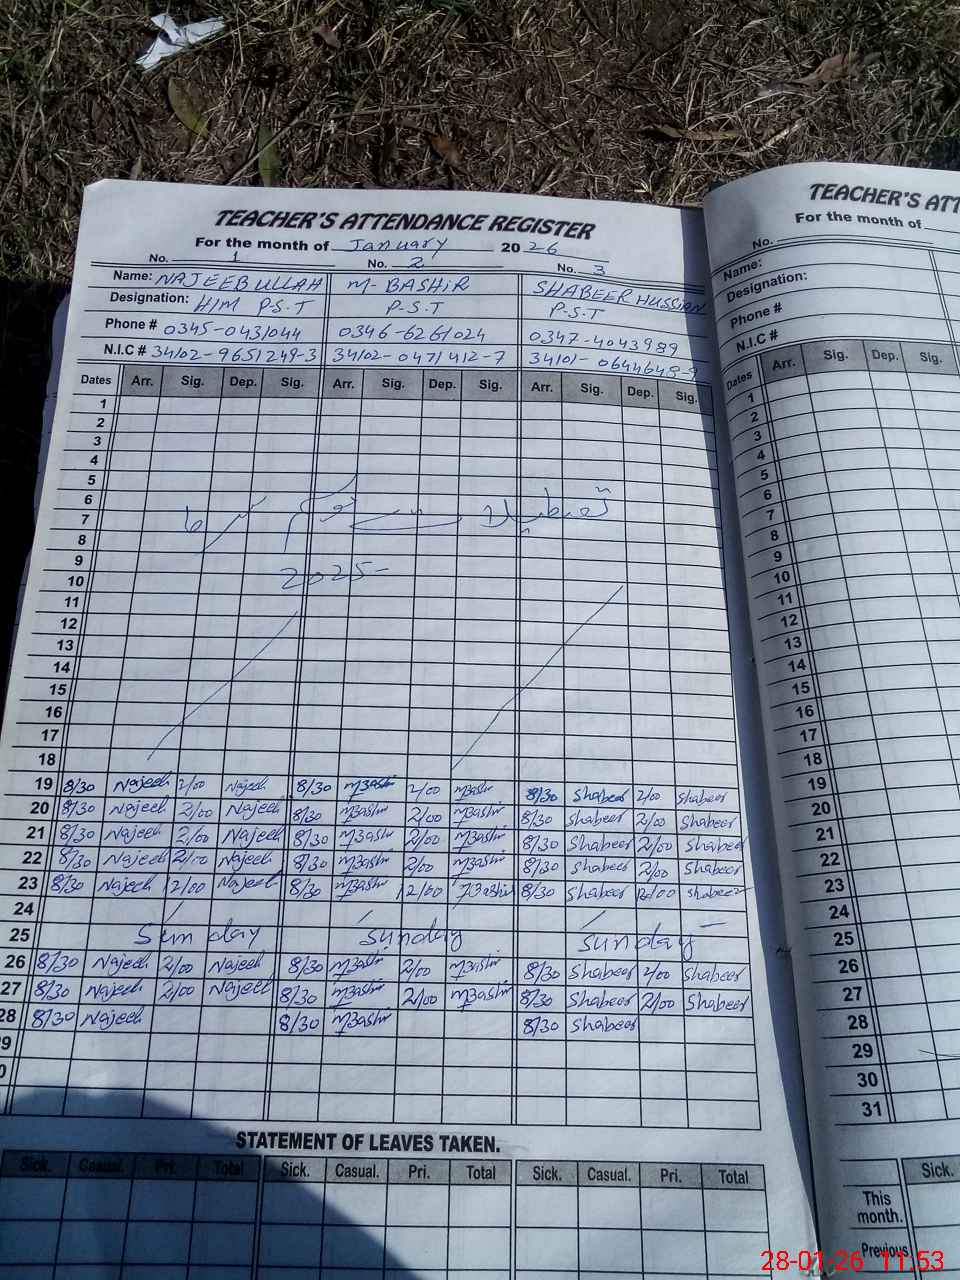 TEACHER'S ATTENDANCE REGISTER
For the month of January 2026
No. 1 No. 2 No. 3
Name: NAJEEBULLAH M-BASHIR SHABEER HUSSIAN
Designation: H/M P.S.T P.S.T P.S.T
Phone # 0345-0431044 0346-6261024 0347-4043989
N.I.C # 34102-9651249-3 34102-0471412-7 34101-0644648-9
Dates Arr. Sig. Dep. Sig. Arr. Sig. Dep. Sig. Arr. Sig. Dep. Sig.
1
2
3
4
5
6
تعطیلات موسم سرما
7
8
9
10 2025-
11
12
13
14
15
16
17
18
19 8/30 Najeeb 2/00 Najeeb 8/30 MBashir 2/00 MBashir 8/30 Shabeer 2/00 Shabeer
20 8/30 Najeeb 2/00 Najeeb 8/30 MBashir 2/00 MBashir 8/30 Shabeer 2/00 Shabeer
21 8/30 Najeeb 2/00 Najeeb 8/30 MBashir 2/00 MBashir 8/30 Shabeer 2/00 Shabeer
22 8/30 Najeeb 2/00 Najeeb 8/30 MBashir 2/00 MBashir 8/30 Shabeer 2/00 Shabeer
23 8/30 Najeeb 12/00 Najeeb 8/30 MBashir 12/00 MBashir 8/30 Shabeer 12/00 Shabeer
24
25 Sunday Sunday Sunday
26 8/30 Najeeb 2/00 Najeeb 8/30 MBashir 2/00 MBashir 8/30 Shabeer 2/00 Shabeer
27 8/30 Najeeb 2/00 Najeeb 8/30 MBashir 2/00 MBashir 8/30 Shabeer 2/00 Shabeer
28 8/30 Najeeb 8/30 MBashir 8/30 Shabeer
9
0
STATEMENT OF LEAVES TAKEN.
Sick. Casual. Pri. Total Sick. Casual. Pri. Total Sick. Casual. Pri. Total
TEACHER'S ATT
For the month of
No.
Name:
Designation:
Phone #
N.I.C #
Dates Arr. Sig. Dep. Sig.
1
2
3
4
5
6
7
8
9
10
11
12
13
14
15
16
17
18
19
20
21
22
23
24
25
26
27
28
29
30
31
Sick.
This
month.
Previous
28-01-26 11.53